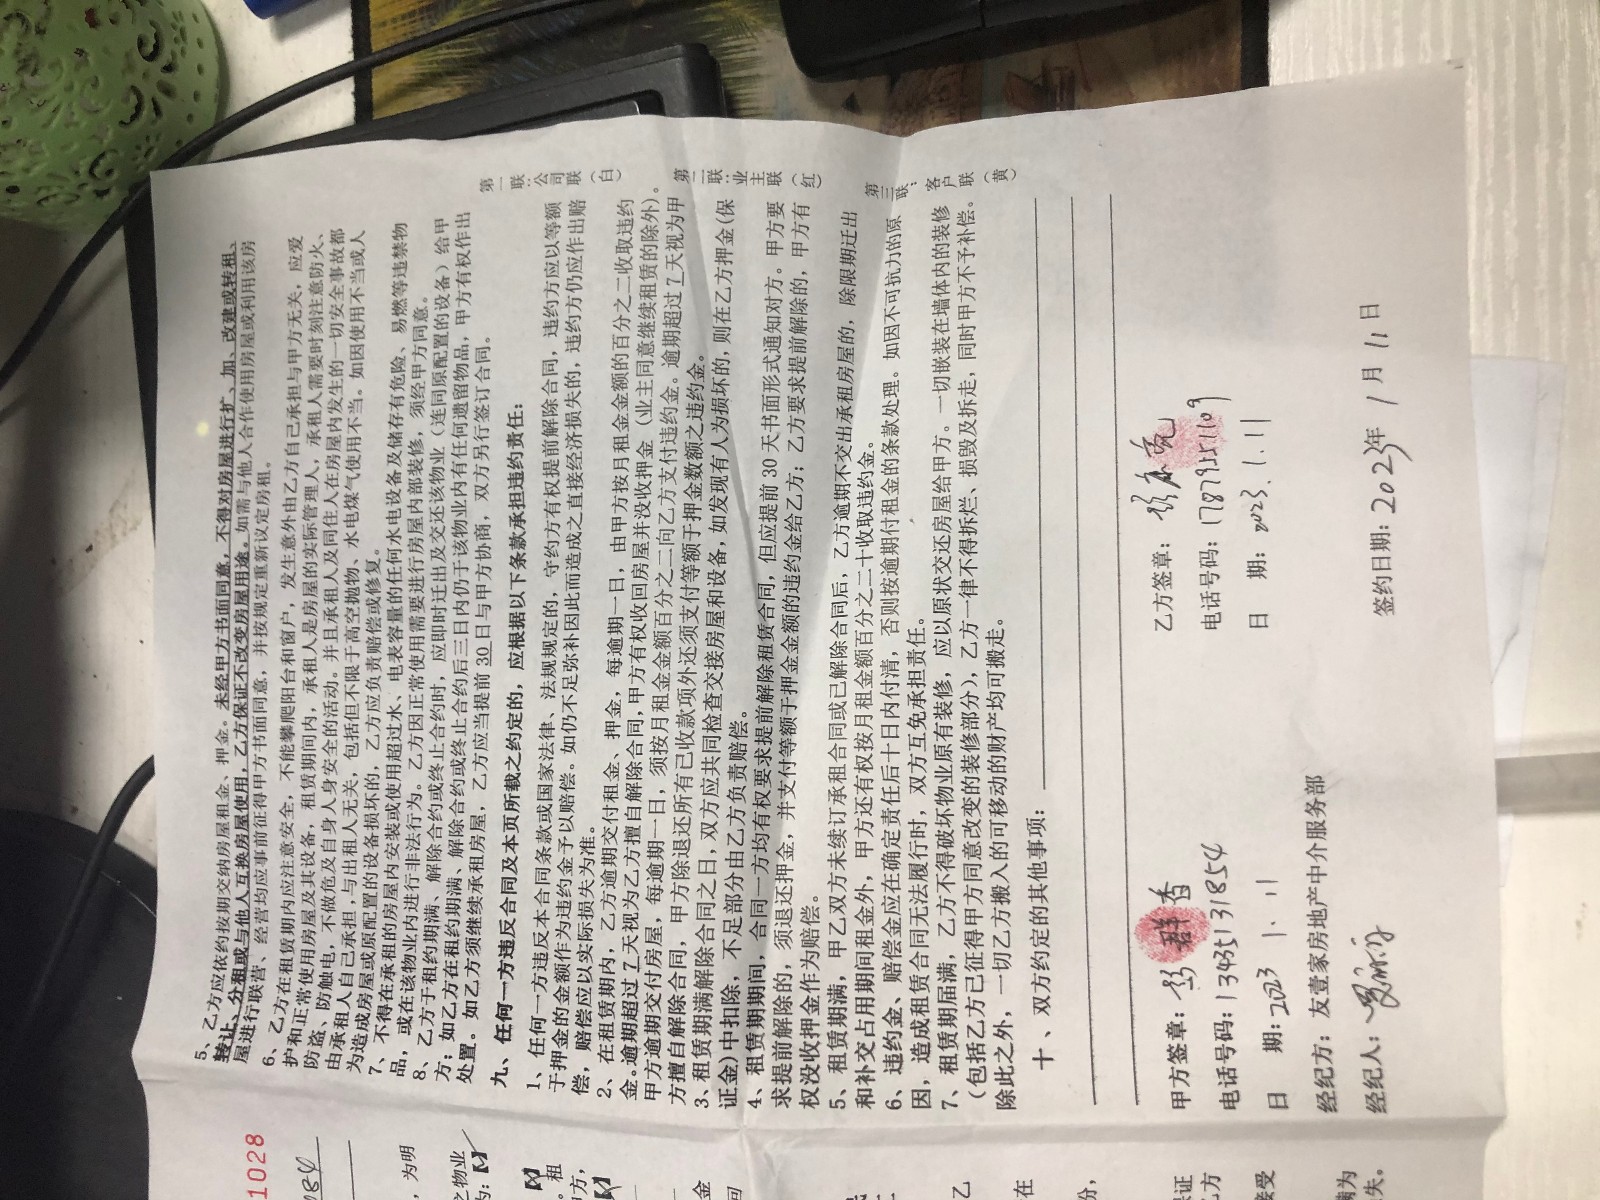 5、乙方应依约按期交纳房屋租金、押金。未经甲方书面同意,不得对房屋进行扩、加、改建或转租、
转让、分租或与他人互换房屋使用,乙方保证不改变房屋用途。如需与他人合作使用房屋或利用该房
屋进行联营、经营均应事前征得甲方书面同意,并按规定重新议定房租。
6、乙方在租赁期内应注意安全,不能攀爬阳台和窗户,发生意外由乙方自己承担与甲方无关,应爱
护和正常使用房屋及其设备,租赁期间内,承租人是房屋的实际管理人,承租人需要时刻注意防火、
防盗、防触电,不做危及自身人身安全的活动。并且承租人及同住人在房屋内发生的一切安全事故都
由承租人自己承担,与出租人无关,包括但不限于高空抛物、水电煤气使用不当。如因使用不当或人
为造成房屋或原配置的设备损坏的,乙方应负责赔偿或修复。
7、不得在承租的房屋内安装或使用超过水、电表容量的任何水电设备及储存有危险、易燃等违禁物
品,或在该物业内进行非法行为。乙方因正常使用需要进行房屋内部装修,须经甲方同意。
8、乙方于租约期满、解除合约或终止合约时,应即时迁出及交还该物业(连同原配置的设备)给甲
方;如乙方在租约期满、解除合约或终止合约后三日内仍于该物业内有任何遗留物品,甲方有权作出
处置。如乙方须继续承租房屋,乙方应当提前 30 日与甲方协商,双方另行签订合同。
九、任何一方违反合同及本页所载之约定的,应根据以下条款承担违约责任:
1、任何一方违反本合同条款或国家法律、法规规定的,守约方有权提前解除合同,违约方应以等额
于押金的金额作为违约金予以赔偿。如仍不足弥补因此而造成之直接经济损失的,违约方仍应作出赔
偿,赔偿应以实际损失为准。
2、在租赁期内,乙方逾期交付租金、押金,每逾期一日,由甲方按月租金金额的百分之二收取违约
金。逾期超过 7 天视为乙方擅自解除合同,甲方有权收回房屋并没收押金(业主同意继续租赁的除外)。
甲方逾期交付房屋,每逾期一日,须按月租金金额百分之二向乙方支付违约金。逾期超过 7 天视为甲
方擅自解除合同,甲方除退还所有已收款项外还须支付等额于押金数额之违约金。
3、租赁期满解除合同之日,双方应共同检查交接房屋和设备,如发现有人为损坏的,则在乙方押金(保
证金)中扣除,不足部分由乙方负责赔偿。
4、租赁期期间,合同一方均有权要求提前解除租赁合同,但应提前 30 天书面形式通知对方。甲方要
求提前解除的,须退还押金,并支付等额于押金金额的违约金给乙方;乙方要求提前解除的,甲方有
权没收押金作为赔偿。
5、租赁期满,甲乙双方未续订承租合同或已解除合同后,乙方逾期不交出承租房屋的,除限期迁出
和补交占用期间租金外,甲方还有权按月租金额百分之二十收取违约金。
6、违约金、赔偿金应在确定责任后十日内付清,否则按逾期付租金的条款处理。如因不可抗力的原
因,造成租赁合同无法履行时,双方互免承担责任。
7、租赁期届满,乙方不得破坏物业原有装修,应以原状交还房屋给甲方。一切嵌装在墙体内的装修
(包括乙方已征得甲方同意改变的装修部分),乙方一律不得拆烂、损毁及拆走,同时甲方不予补偿。
除此之外,一切乙方搬入的可移动的财产均可搬走。
十、双方约定的其他事项:
第一联:公司联(白)
第二联:业主联(红)
第三联:客户联(黄)
甲方签章:彭群香
乙方签章:
电话号码:13435131854
电话号码:17875511109
日 期:2023 1.11
日 期:2023.1.11
经纪方:友壹家房地产中介服务部
经纪人:
签约日期:2023年 1 月 11 日
1028
,为明
之物业
。租
方,
金
乙
在
份,
证
方
接受
满为
失。